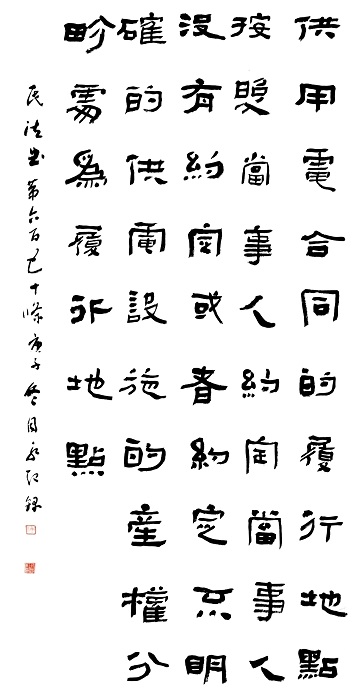 供用電合同的履行地點
按照當事人約定當事人
沒有約定或者約定不明
確的供電設施的産權分
畍處爲履行地點
民法典第六百五十條庚子冬月錄